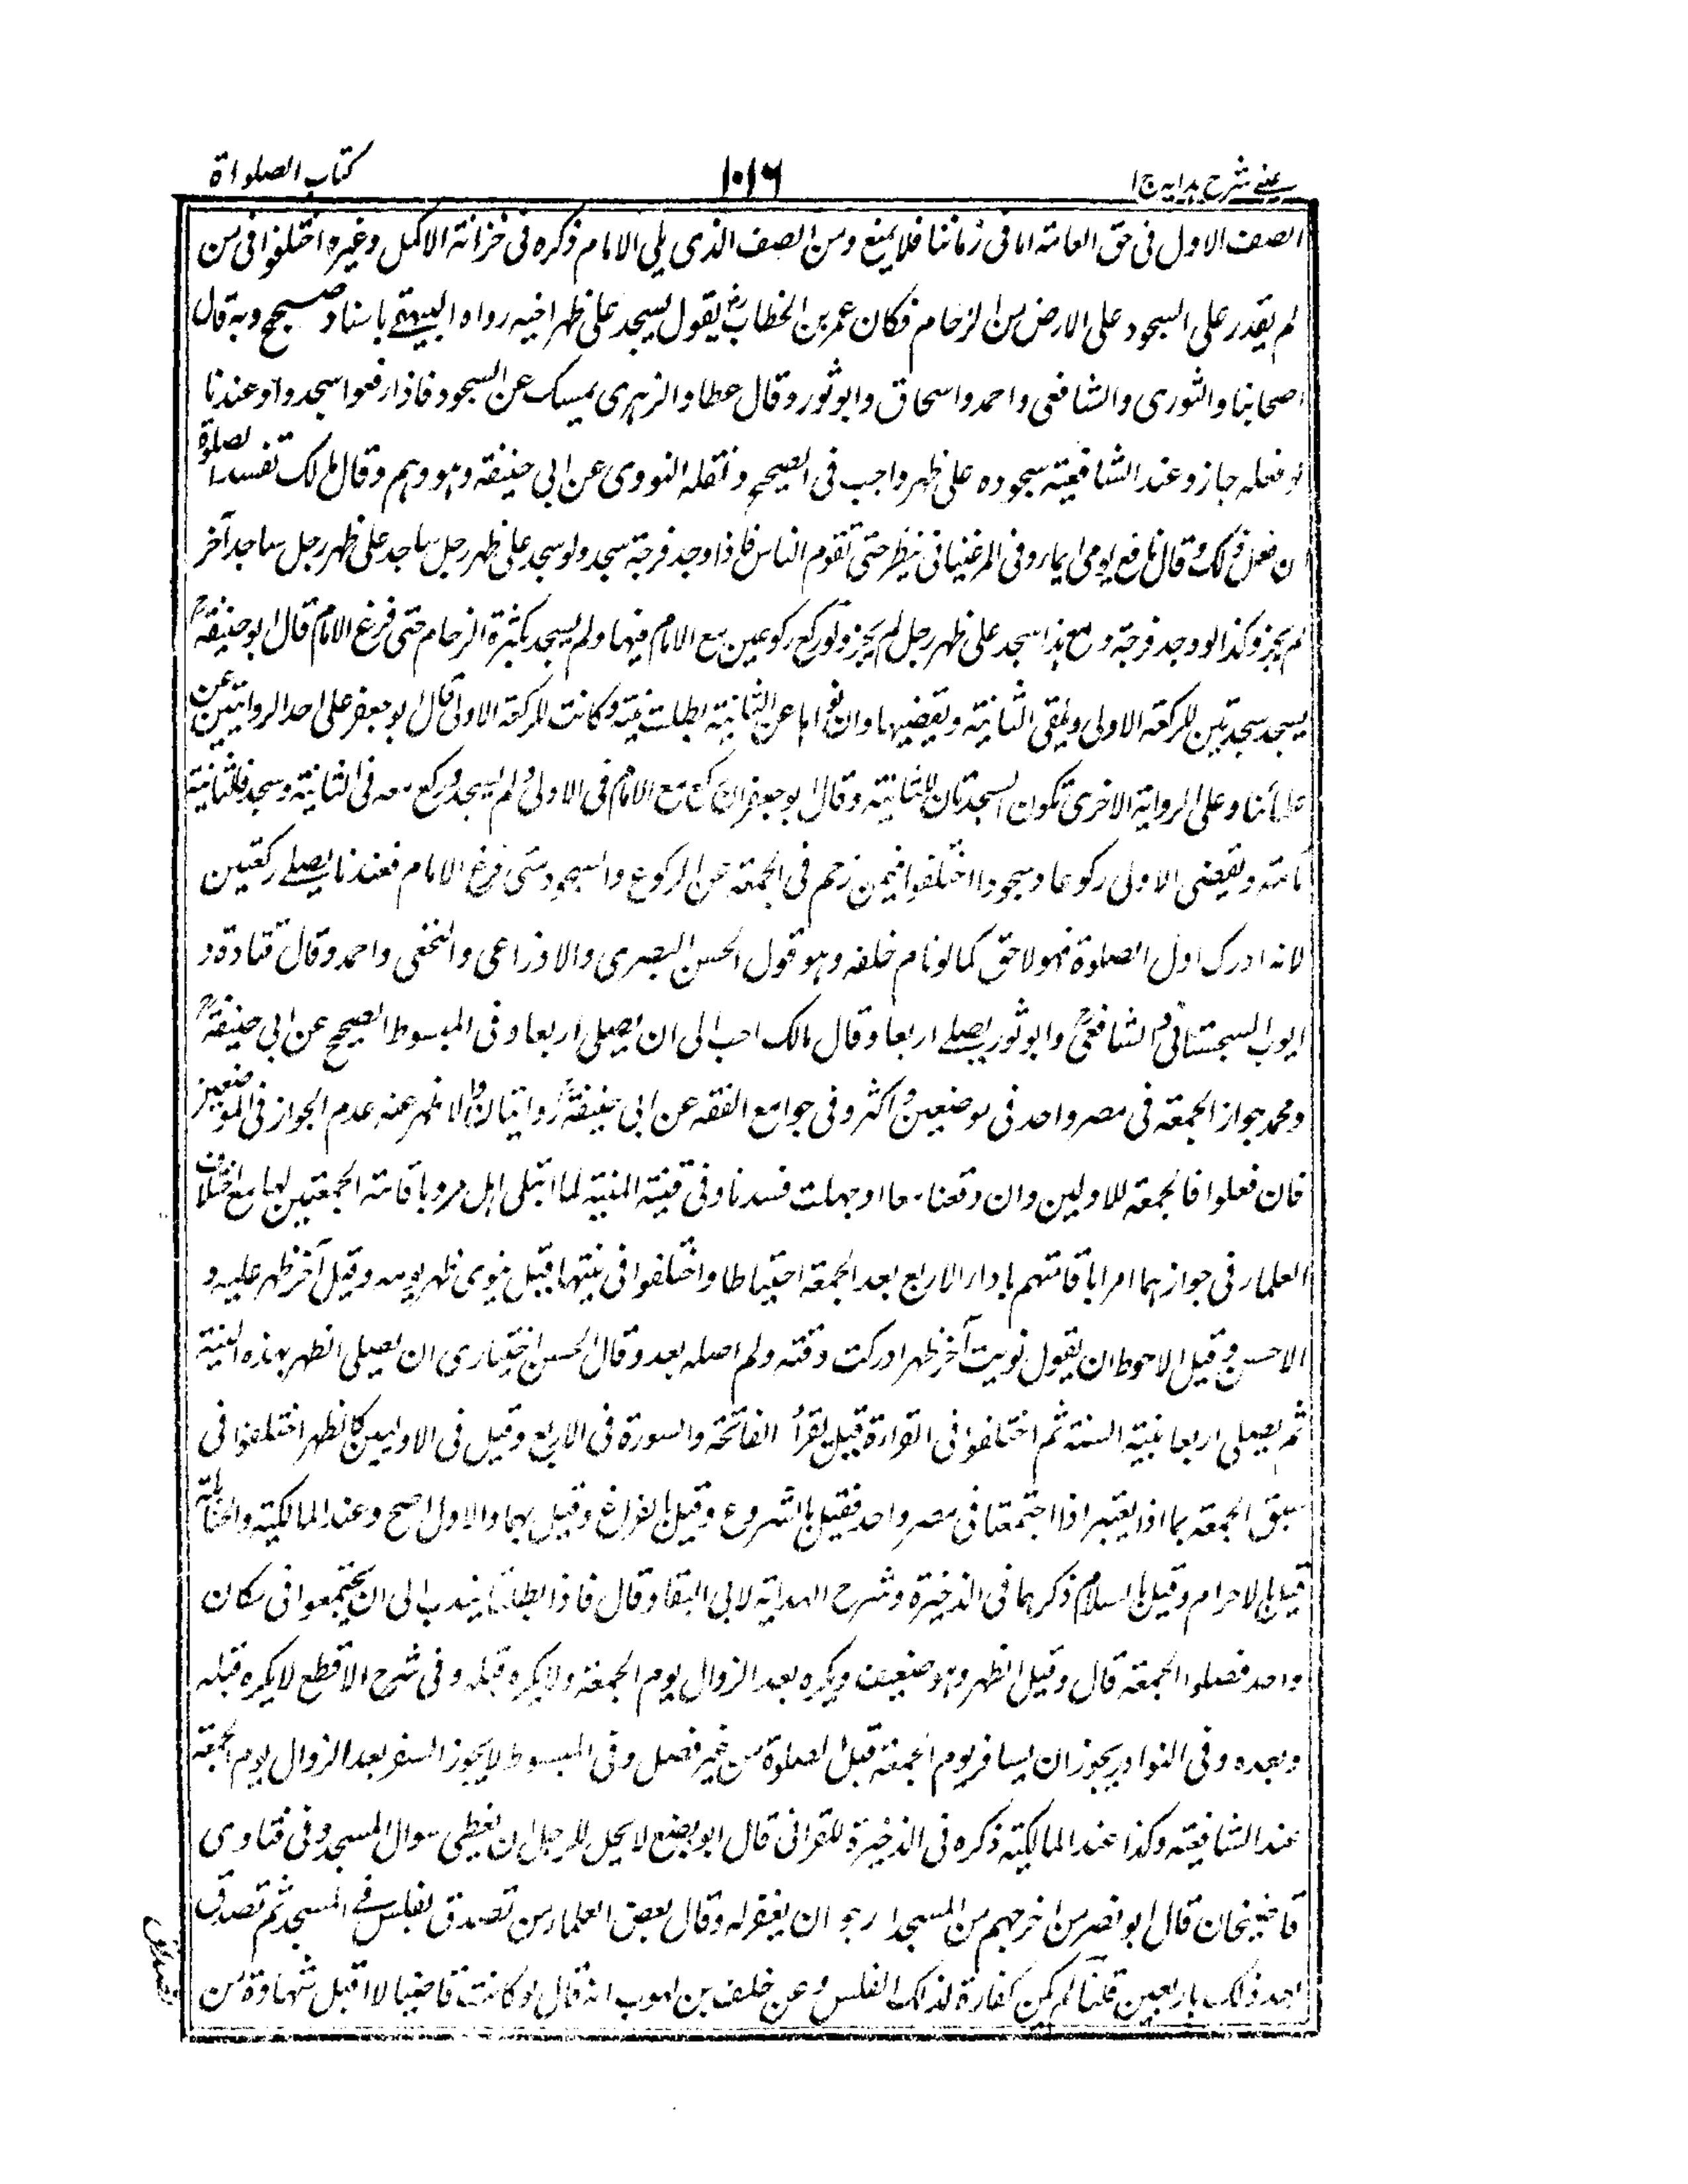 عينى شرح هدايه ج ا
١٠١٦
كتاب الصلواة
الصف الاول فى حق العامة اما فى زماننا فلا يمنع ومن الصف الذى يلى الامام ذكره فى خزانة الاكمل وغيره اختلفوا فى من
لم يقدر على السجود على الارض من الزحام فكان عمر بن الخطابؓ يقول يسجد على ظهر اخيه رواه البيهقى باسناد صحيح وبه قال
اصحابنا والثورى والشافعى واحمد واسحاق وابو ثور وقال عطا والزهرى يمسك عن السجود فاذا رفعوا سجد وا وعندنا
لو فعله جاز وعند الشافعية سجوده على ظهر واجب فى الصحيح ونقله النووى عن ابى حنيفة وهو وهم وقال مالك تفسد الصلوة
ان فعل ذلك وقال نافع يومى ايماء وفى المرغينانى ينتظر حتى تقوم الناس فاذا وجد فرجة سجد ولو سجد على ظهر رجل ساجد على ظهر رجل ساجد آخر
لم يجز وكذا لو وجد فرجة و مع هذا سجد على ظهر رجل لم يجز ولو ركع ركوعين مع الامام فيها ولم يسجد بكثرة الزحام حتى فرغ الامام قال ابو حنيفةؒ
يسجد سجدتين للركعة الاولى ويلقى الثانية ويقضيها وان نواها عن الثانية بطلت نيته وكانت للركعة الاولى قال ابو جعفر على احد الروايتين عن
علمائنا وعلى الرواية الاخرى تكون السجدتان للثانية وقال ابو جعفر ان ركع مع الامام فى الاولى ولم يسجد وركع معه فى الثانية وسجد فالثانية
تامة ويقضى الاولى ركوعا وسجودا اختلفوا فيمن زحم فى الجمعة عن الركوع والسجود حتى فرغ الامام فعندنا يصلى ركعتين
لانه ادرك اول الصلوة فهو لاحق كما لو نام خلفه وهو قول الحسن البصرى والاوزاعى والنخعى واحمد وقال قتادة و
ايوب السجستانى والشافعىؒ وابو ثور يصلى اربعا وقال مالك احب الى ان يصلى اربعا وفى المبسوط الصحيح عن ابى حنيفةؒ
ومحمد جواز الجمعة فى مصر واحد فى موضعين واكثر وفى جوامع الفقه عن ابى حنيفةؒ روايتان والاظهر عنه عدم الجواز فى الموضعين
فان فعلوا فالجمعة للاولين وان وقعتا معا او جهلت فسدتا وفى قنية المنية لما ابتلى اهل مرو باقامة الجمعتين لها مع اختلاف
العلماء فى جوازهما امر اباقامتهم باداء الاربع بعد الجمعة احتياطا واختلفوا فى نيتها قيل ينوى ظهر يومه وقيل آخر ظهر عليه و
الاحسن وقيل الاحوط ان يقول نويت آخر ظهر ادركت وقته ولم اصله بعد وقال الحسن اختيارى ان يصلى الظهر بهذه النية
ثم يصلى اربعا بنية السنة ثم اختلفوا فى القراءة قيل يقرأ الفاتحة والسورة فى الاربع وقيل فى الاوليين كالظهر اختلفوا فى
سبق الجمعة بما اذا يعتبر اذا اجتمعتا فى مصر واحد فقيل بالشروع وقيل بالفراغ وقيل بهما والاول اصح وعند المالكية والحنابلة
قيل بالاحرام وقيل بالسلام ذكرهما فى الذخيرة وشرح الهداية لابى البقا وقال فاذا بطلتا يندب الى ان يجتمعوا فى مكان
واحد فصلوا الجمعة قال وقيل الظهر وهو ضعيف ويكره بعد الزوال يوم الجمعة ولا يكره قبله وفى شرح الاقطع لا يكره قبله
وبعده وفى النوادر يجوز ان يسافر يوم الجمعة قبل الصلوة من غير فصل وفى المبسوط لا يجوز السفر بعد الزوال يوم الجمعة
عند الشافعية وكذا عند المالكية ذكره فى الذخيرة للقرافى قال ابو لا يحل للرجل ان يعطى سوال المسجد وفى فتاوى
قاضيخان قال ابو نصر من اخرجهم من المسجد ارجو ان يغفر له وقال بعض العلماء من تصدق بفلس فى المسجد ثم تصدق
بعد ذلك باربعين فلسا لم يكن كفارة لذلك الفلس وعن خلف بن ايوب انه قال لو كانت قاضيا لا اقبل شهادة من